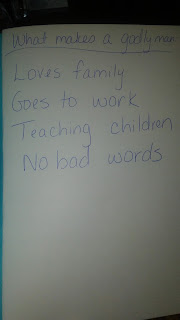 What makes a godly man
Loves family
Goes to work
Teaching children
No bad words